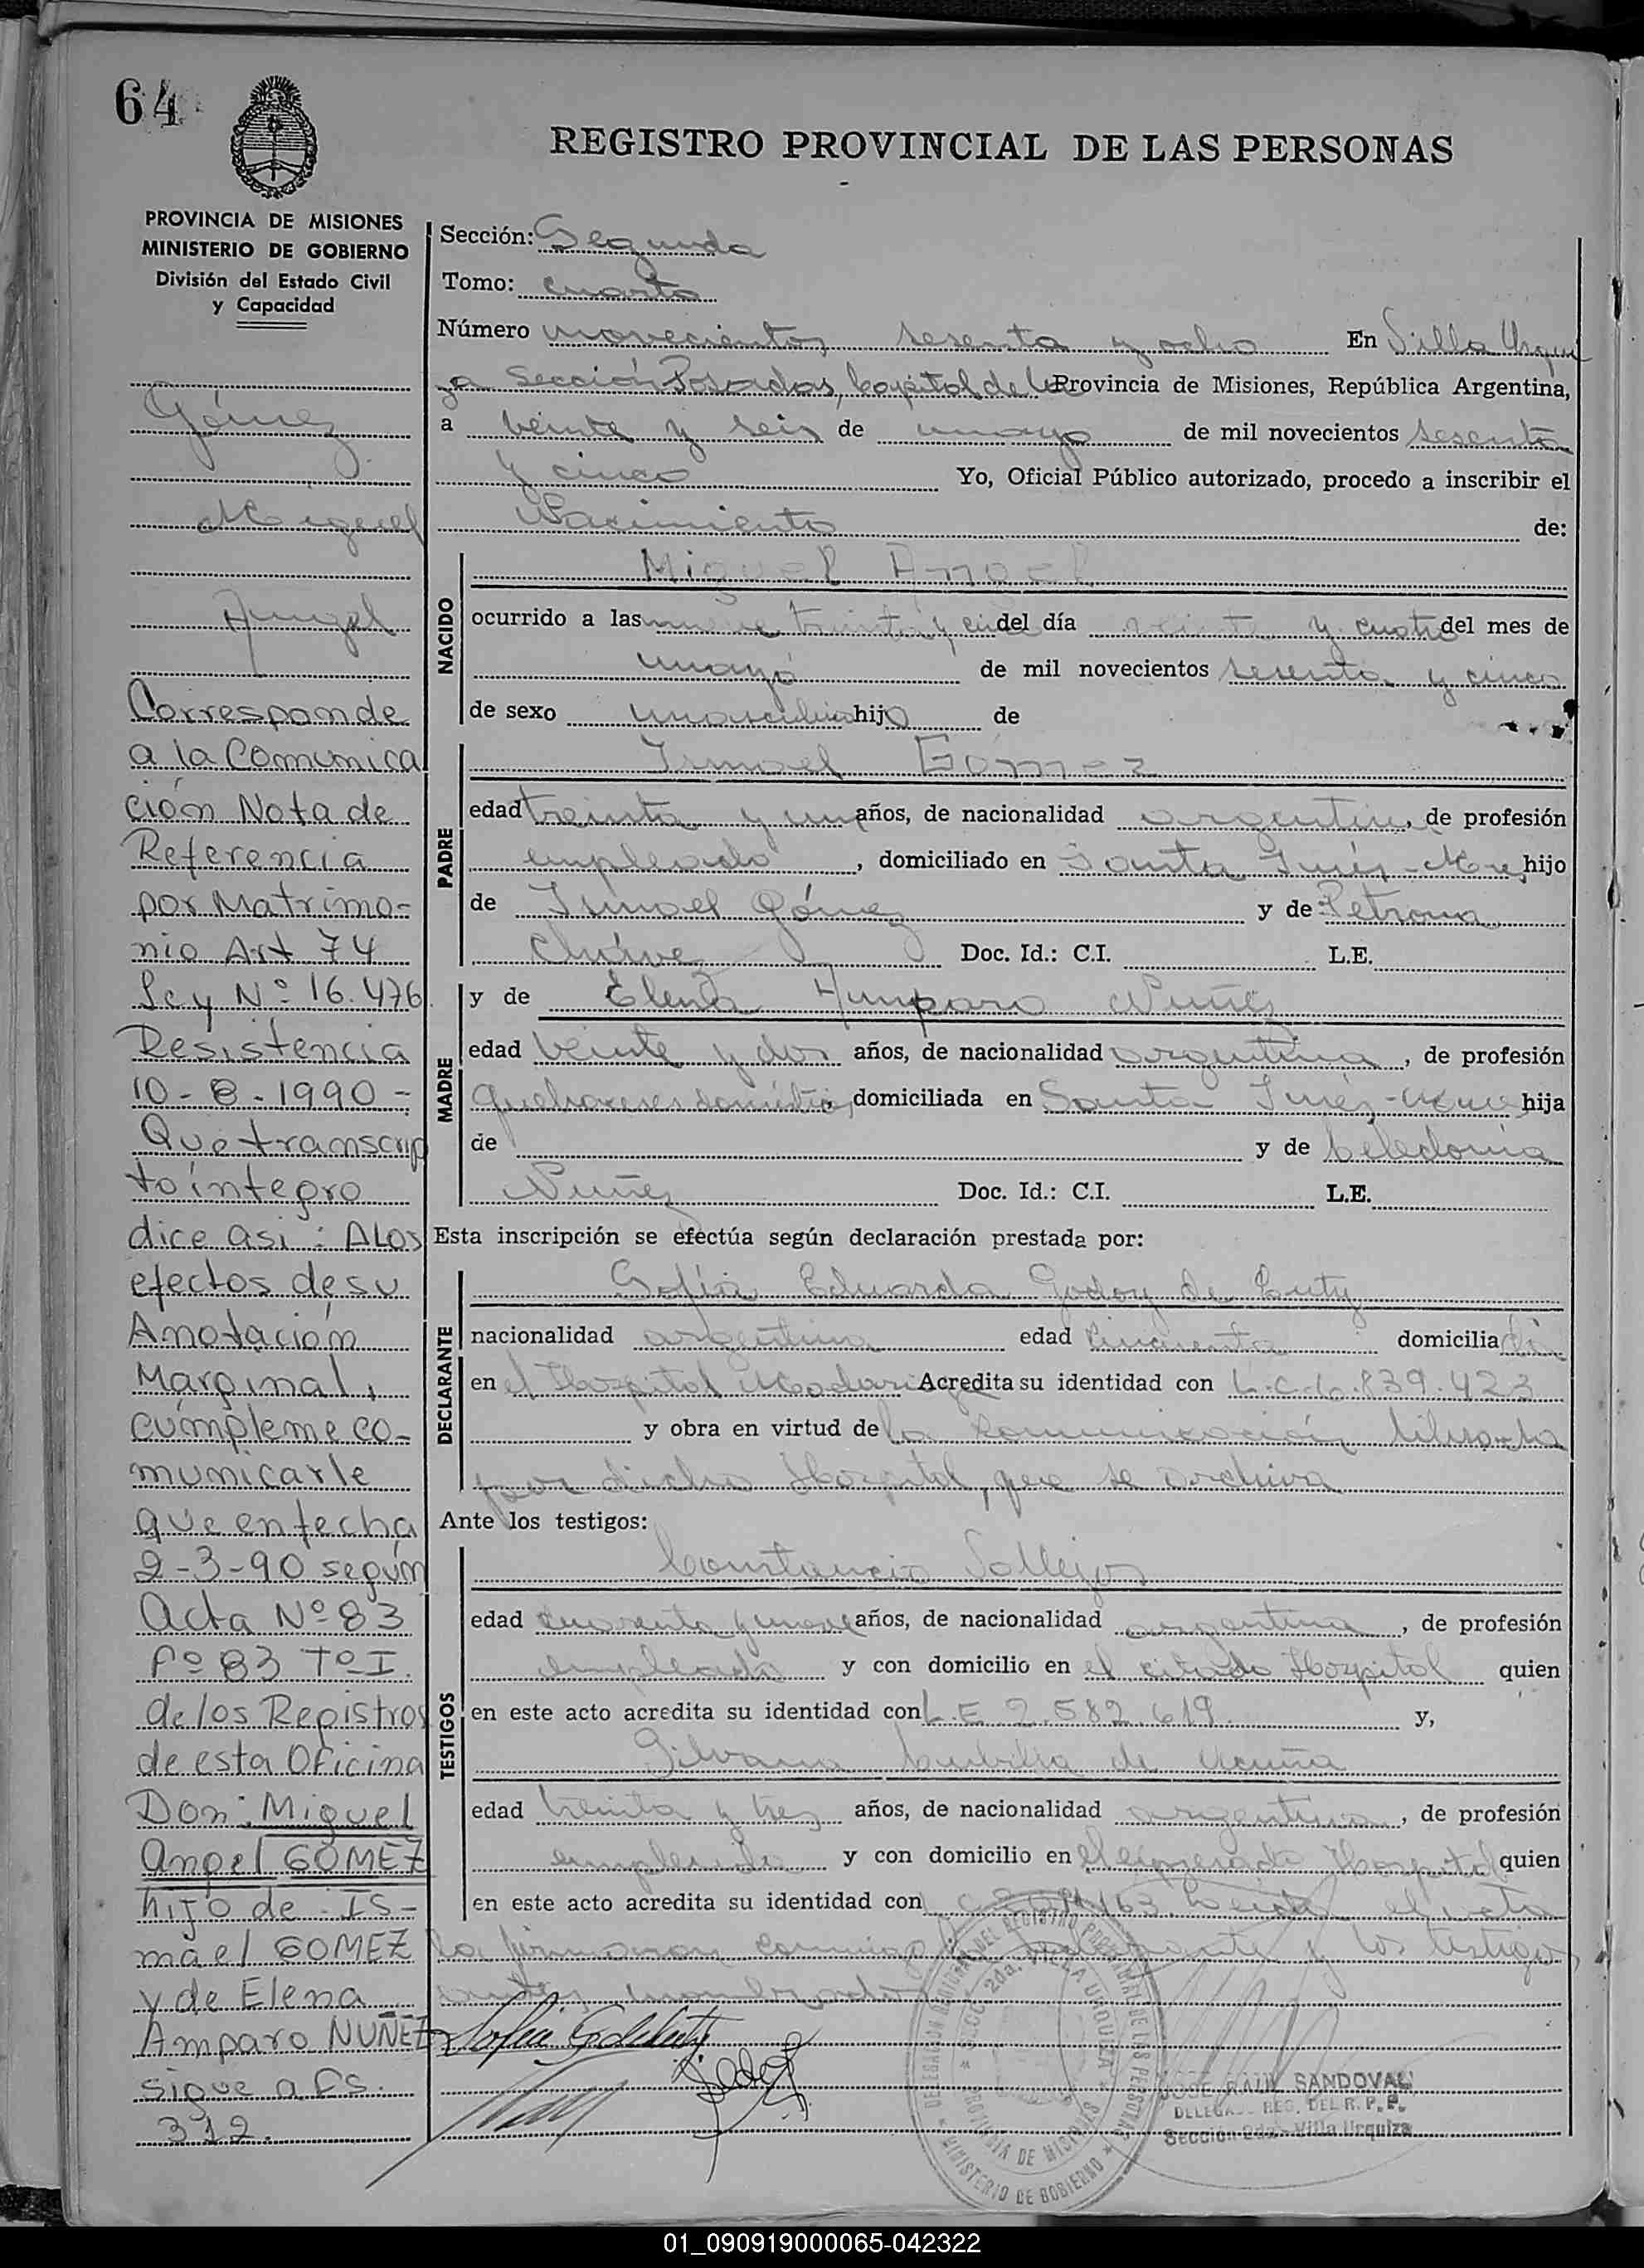 64
REGISTRO PROVINCIAL DE LAS PERSONAS
PROVINCIA DE MISIONES
MINISTERIO DE GOBIERNO
División del Estado Civil
y Capacidad
Gómez
Miguel
Angel
Corresponde
a la Comunica
ción Nota de
Referencia
por Matrimo-
nio Art 74
Ley Nº 16.476
Resistencia
10-8-1990-
Que transcrip
to íntegro
dice asi: ALos
efectos de su
Anotación
Marginal,
cúmpleme co-
municarle
que en fecha
2-3-90 según
Acta Nº 83
Fº 83 Tº I.
de los Registros
de esta Oficina
Don: Miguel
Angel GOMEZ
hijo de IS-
mael GOMEZ
y de Elena
Amparo NUÑEZ
sigue a Fs.
312.
Sección: Segunda
Tomo: cuarto
Número novecientos sesenta y ocho En Villa Urqui
za Sección Posadas, Capital de la Provincia de Misiones, República Argentina,
a veinte y seis de mayo de mil novecientos sesenta
y cinco Yo, Oficial Público autorizado, procedo a inscribir el
Nacimiento de:
NACIDO
Miguel Angel
ocurrido a las nueve treinta y cinco del día veinte y cuatro del mes de
mayo de mil novecientos sesenta y cinco
de sexo masculino hijo de
PADRE
Ismael Gómez
edad treinta y un años, de nacionalidad argentina, de profesión
empleado, domiciliado en Santa Inés - Mnes hijo
de Ismael Gómez y de Petrona
Doc. Id.: C.I. L.E.
MADRE
y de Elena Amparo Nuñez
edad veinte y dos años, de nacionalidad argentina, de profesión
quehaceres domésticos, domiciliada en Santa Inés - hija
de y de Celedonia
Nuñez Doc. Id.: C.I. L.E.
Esta inscripción se efectúa según declaración prestada por:
DECLARANTE
Sofía Eduarda Godoy de
nacionalidad argentina edad cincuenta domicilia da
en el Hospital Madariaga Acredita su identidad con L.C. 839.423
y obra en virtud de la comunicación librada
por dicho Hospital, que se archiva
Ante los testigos:
TESTIGOS
Constancio Vallejos
edad cuarenta y nueve años, de nacionalidad argentina, de profesión
empleado y con domicilio en el citado Hospital quien
en este acto acredita su identidad con L.E. 2.582.619 y,
Silvana de Acuña
edad treinta y tres años, de nacionalidad argentina, de profesión
empleada y con domicilio en el expresado Hospital quien
en este acto acredita su identidad con Leída el acta
la firmaron conmigo declarante y los testigos
antes nombrados
DELEGACION REGIONAL DEL REGISTRO PROVINCIAL DE LAS PERSONAS
SECC. 2da. VILLA URQUIZA
PROVINCIA DE MISIONES
MINISTERIO DE GOBIERNO
JOSE RAUL SANDOVAL
DELEGA REG. DEL R.P.P.
Sección 2da - Villa Urquiza
01_090919000065-042322